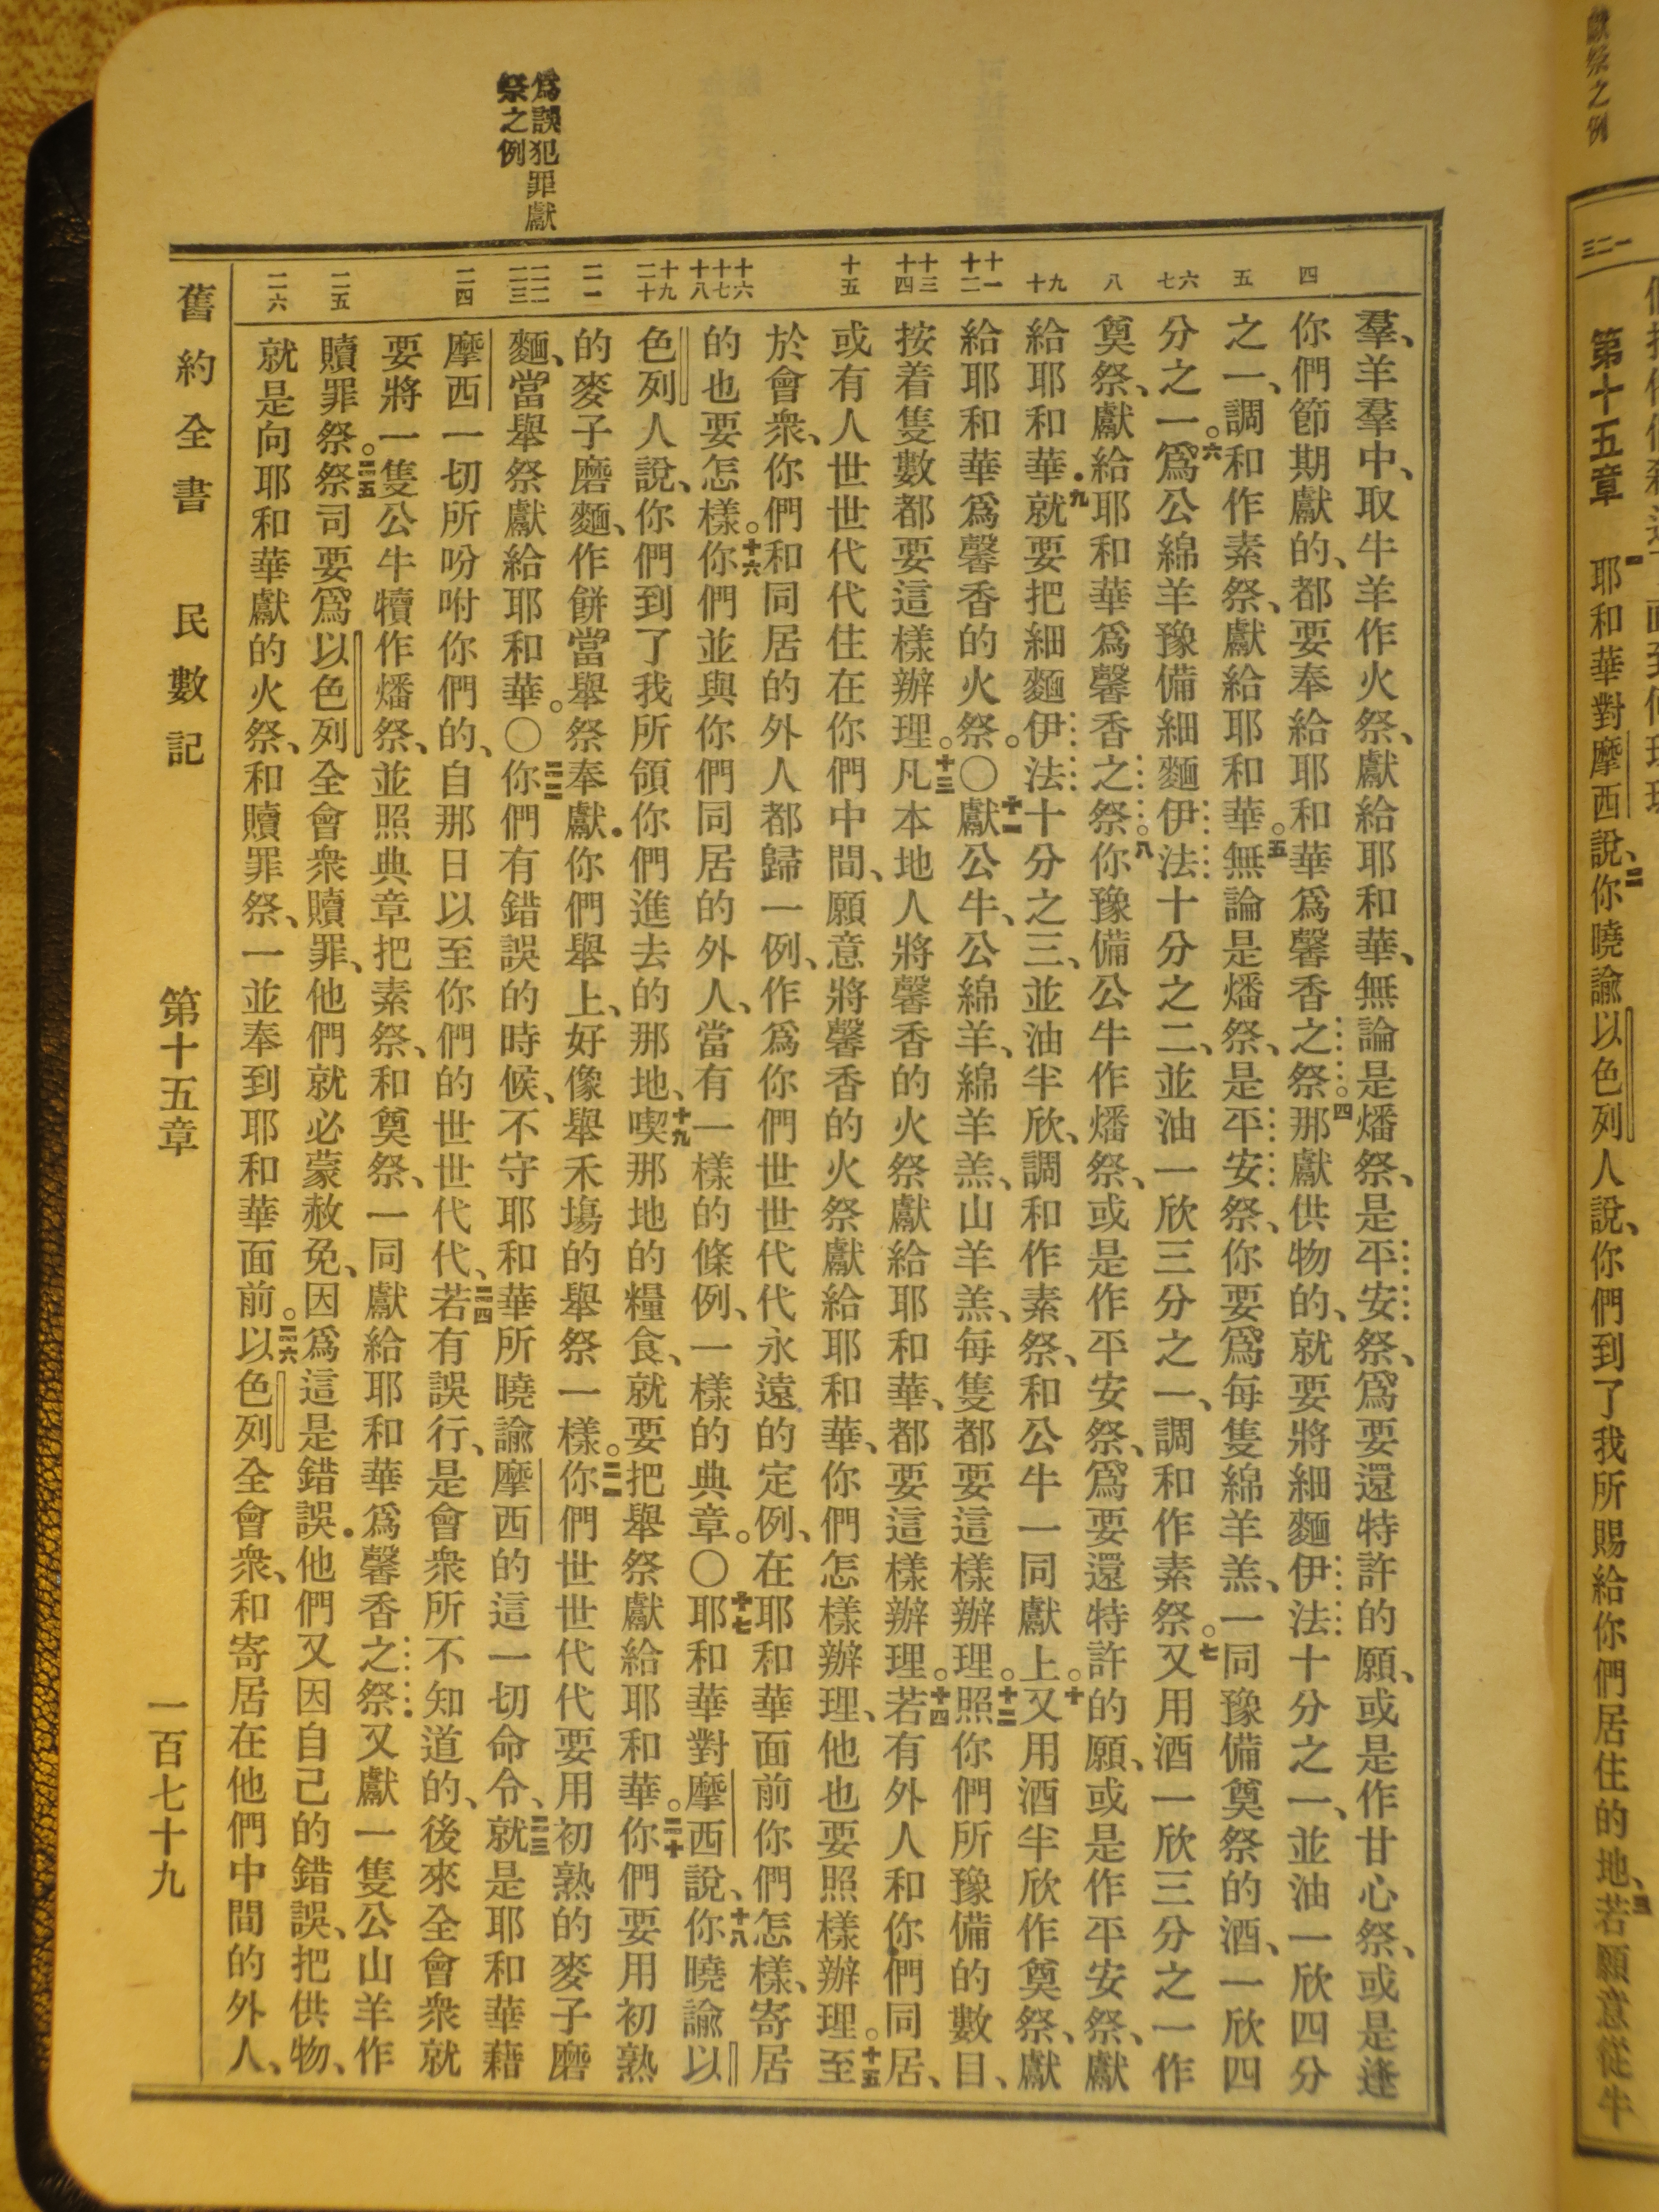 獻祭之例
三二一
第十五章 一耶和華對摩西說、二你曉諭以色列人說、你們到了我所賜給你們居住的地、三若願意從牛
爲誤犯罪獻
祭之例
四
五
六
七
八
九
十
十一
十二
十三
十四
十五
十六
十七
十八
十九
二十
二一
二二
二三
二四
二五
二六
羣、羊羣中、取牛羊作火祭、獻給耶和華、無論是燔祭、是平安祭、爲要還特許的願、或是作甘心祭、或是逢
你們節期獻的、都要奉給耶和華爲馨香之祭。四那獻供物的、就要將細麵伊法十分之一、並油一欣四分
之一、調和作素祭、獻給耶和華。五無論是燔祭、是平安祭、你要爲每隻綿羊羔、一同豫備奠祭的酒、一欣四
分之一。六爲公綿羊豫備細麵伊法十分之二、並油一欣三分之一、調和作素祭。七又用酒一欣三分之一作
奠祭、獻給耶和華爲馨香之祭。八你豫備公牛作燔祭、或是作平安祭、爲要還特許的願、或是作平安祭、獻
給耶和華．九就要把細麵伊法十分之三、並油半欣、調和作素祭、和公牛一同獻上。十又用酒半欣作奠祭、獻
給耶和華爲馨香的火祭。〇十一獻公牛、公綿羊、綿羊羔、山羊羔、每隻都要這樣辦理。十二照你們所豫備的數目、
按着隻數都要這樣辦理。十三凡本地人將馨香的火祭獻給耶和華、都要這樣辦理。十四若有外人和你們同居、
或有人世世代代住在你們中間、願意將馨香的火祭獻給耶和華、你們怎樣辦理、他也要照樣辦理。十五至
於會衆、你們和同居的外人都歸一例、作爲你們世世代代永遠的定例、在耶和華面前你們怎樣、寄居
的也要怎樣。十六你們並與你們同居的外人、當有一樣的條例、一樣的典章。〇十七耶和華對摩西說、十八你曉諭以
色列人說、你們到了我所領你們進去的那地、十九喫那地的糧食、就要把舉祭獻給耶和華。二十你們要用初熟
的麥子磨麵、作餅當舉祭奉獻．你們舉上、好像舉禾塲的舉祭一樣。二一你們世世代代要用初熟的麥子磨
麵、當舉祭獻給耶和華。〇二二你們有錯誤的時候、不守耶和華所曉諭摩西的這一切命令、二三就是耶和華藉
摩西一切所吩咐你們的、自那日以至你們的世世代代、二四若有誤行、是會衆所不知道的、後來全會衆就
要將一隻公牛犢作燔祭、並照典章把素祭、和奠祭、一同獻給耶和華爲馨香之祭．又獻一隻公山羊作
贖罪祭。二五祭司要爲以色列全會衆贖罪、他們就必蒙赦免、因爲這是錯誤．他們又因自己的錯誤、把供物、
就是向耶和華獻的火祭、和贖罪祭、一並奉到耶和華面前。二六以色列全會衆、和寄居在他們中間的外人、
舊約全書 民數記 第十五章 一百七十九